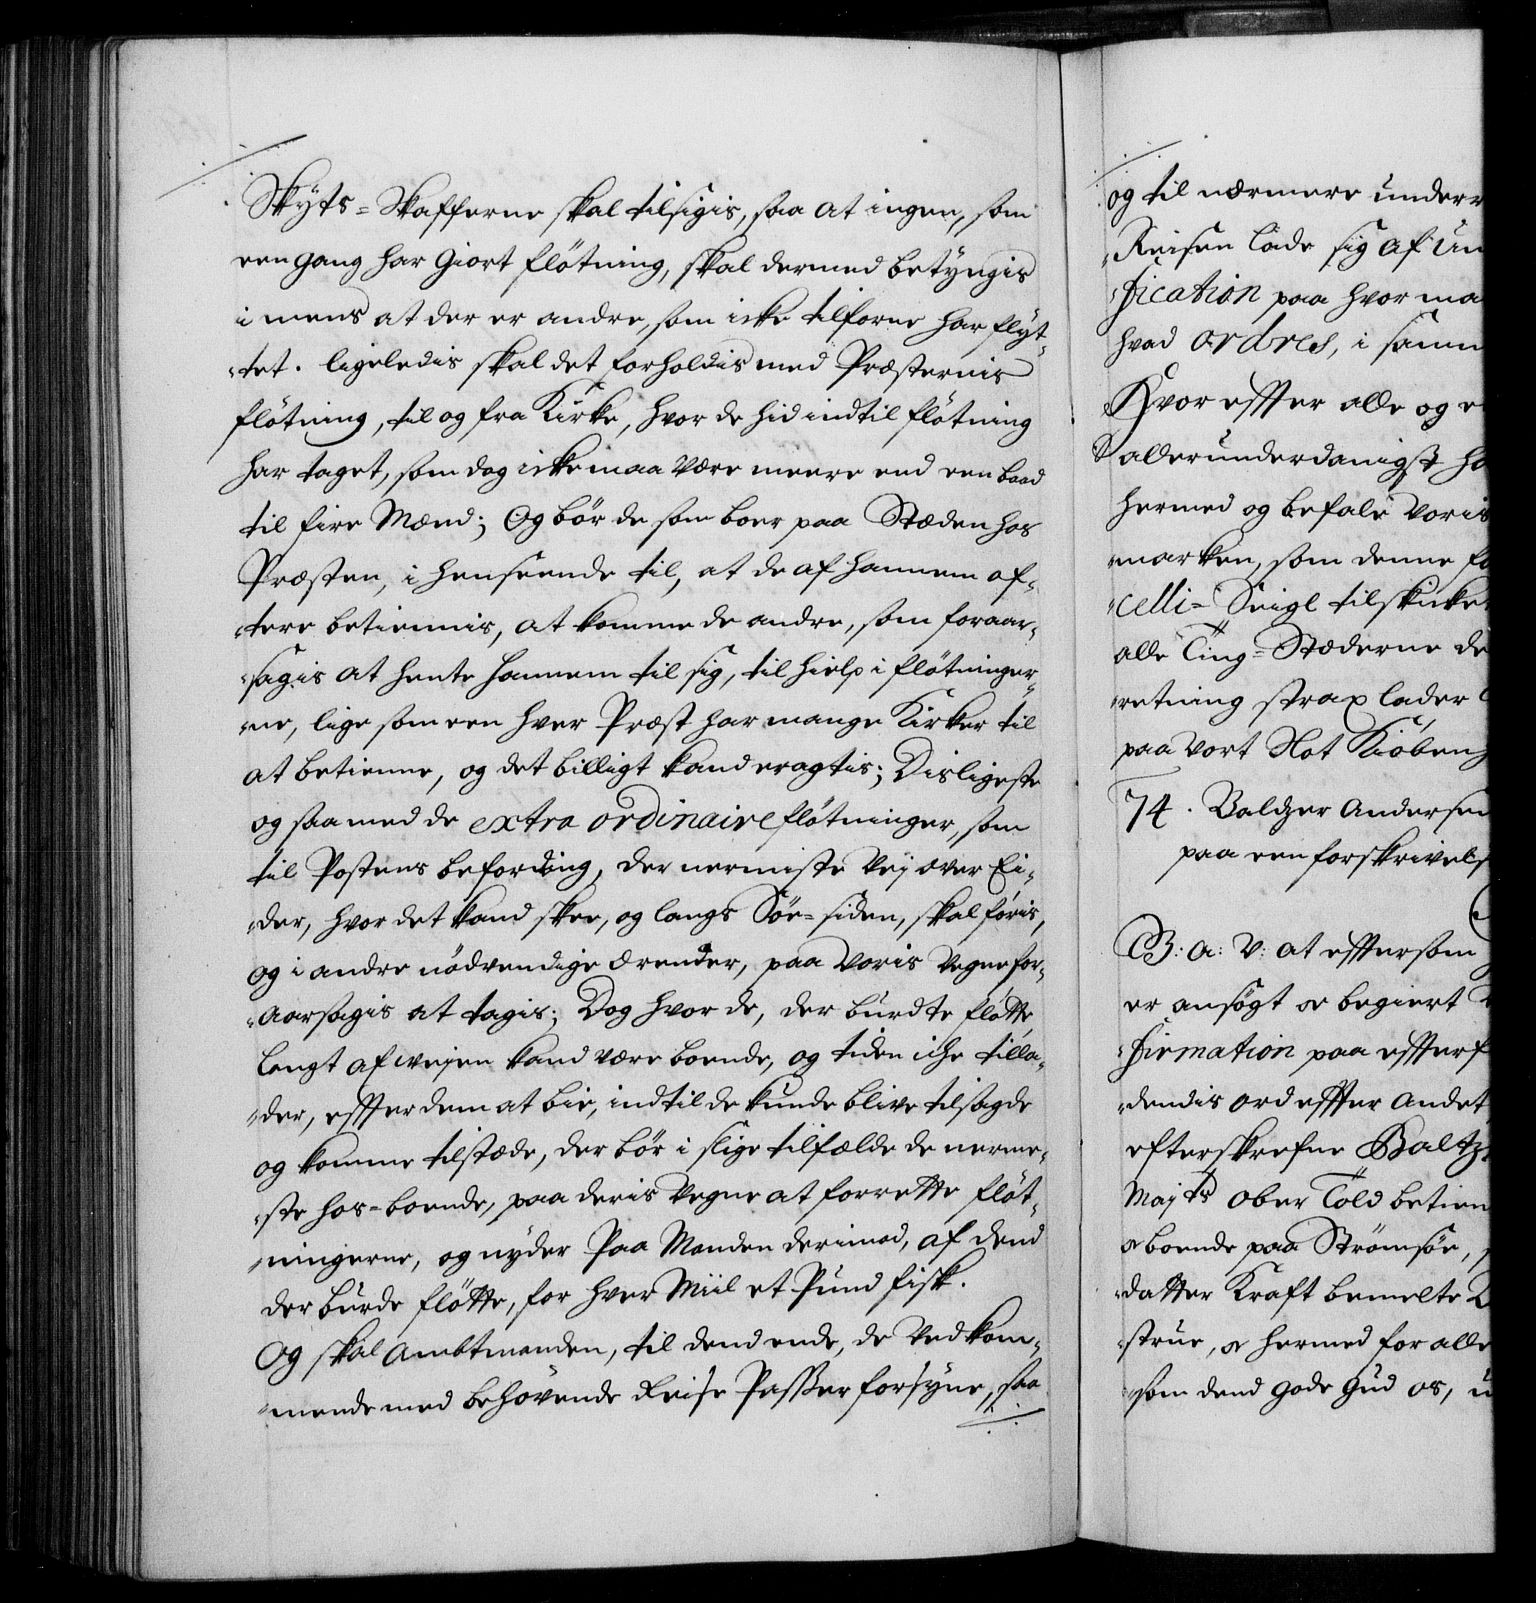 Skyts-Skafferne skal tilsigis, saa at ingen, som
een gang har giort fløtning, skal dermed betyngis
imens at der er andre, som icke tilforne har fløt-
tet. ligeledis skal det forholdis med Præsternis
fløtning, til og fra Kirke, hvor de hid indtil fløtning
har taget, som dog icke maa være meere end een baad
til fire Mænd; Og bør de som boer paa Stæden hos
Præsten, i henseende til, at de af hannem of-
tere betiennis, at komme de andre, som foraar-
sagis at hente hannem til sig, til hielp i fløtninger-
ne, lige som een hver Præst har mange Kirker til
at betienne, og det billigt kand eragtis; Disligeste
og saa med de extra ordinaire fløtninger, som
til Postens befording, der nermiste Vej over Ei-
der, hvor det kand skee, og langs Søe-siden, skal føris,
og i andre nødvendige ærender, paa Voris Vegne for-
aarsagis at tagis; Dog hvor de, der burdte fløtte,
langt af veyen kand være boende, og tiden iche tilla-
der, effter dem at bie, indtil de kunde blive tilsagde
og komme tilstæde, der bør i slige tilfælde de nerme-
ste hos-boende, paa deris Vegne at forrette fløt-
ningerne, og nyder Paa Manden derimod, af dend
der burde fløtte, for hver Miil et Pund fisk.
Og skal Ambtmanden, til dend ende, de Vedkom-
mende med behøvende Reise Passer forsyne, saa
og til nærmere underr
Reisen lade sig af un
fication paa hvor ma
hvad ordres, i samm
Hvor effter alle og e
allerunderdanigst ha
hermed og befale Voris
marken, som denne fo
celli-Seigl tilskicke
alle Ting-Stæderne de
retning strax lader
paa Vort Slot Kiøbenh
74. Baltzer Andersen
paa een forskrivels
G: A: V: at efftersom
er ansøgt og begiert
firmation paa effterf
dendis ord effter andet
efterskrefne Baltz
Maj:ts Ober Told betien
boende paa Strømsøe,
datter Kraft bemelte
strue, og hermed for alle
som dend gode Gud os, u